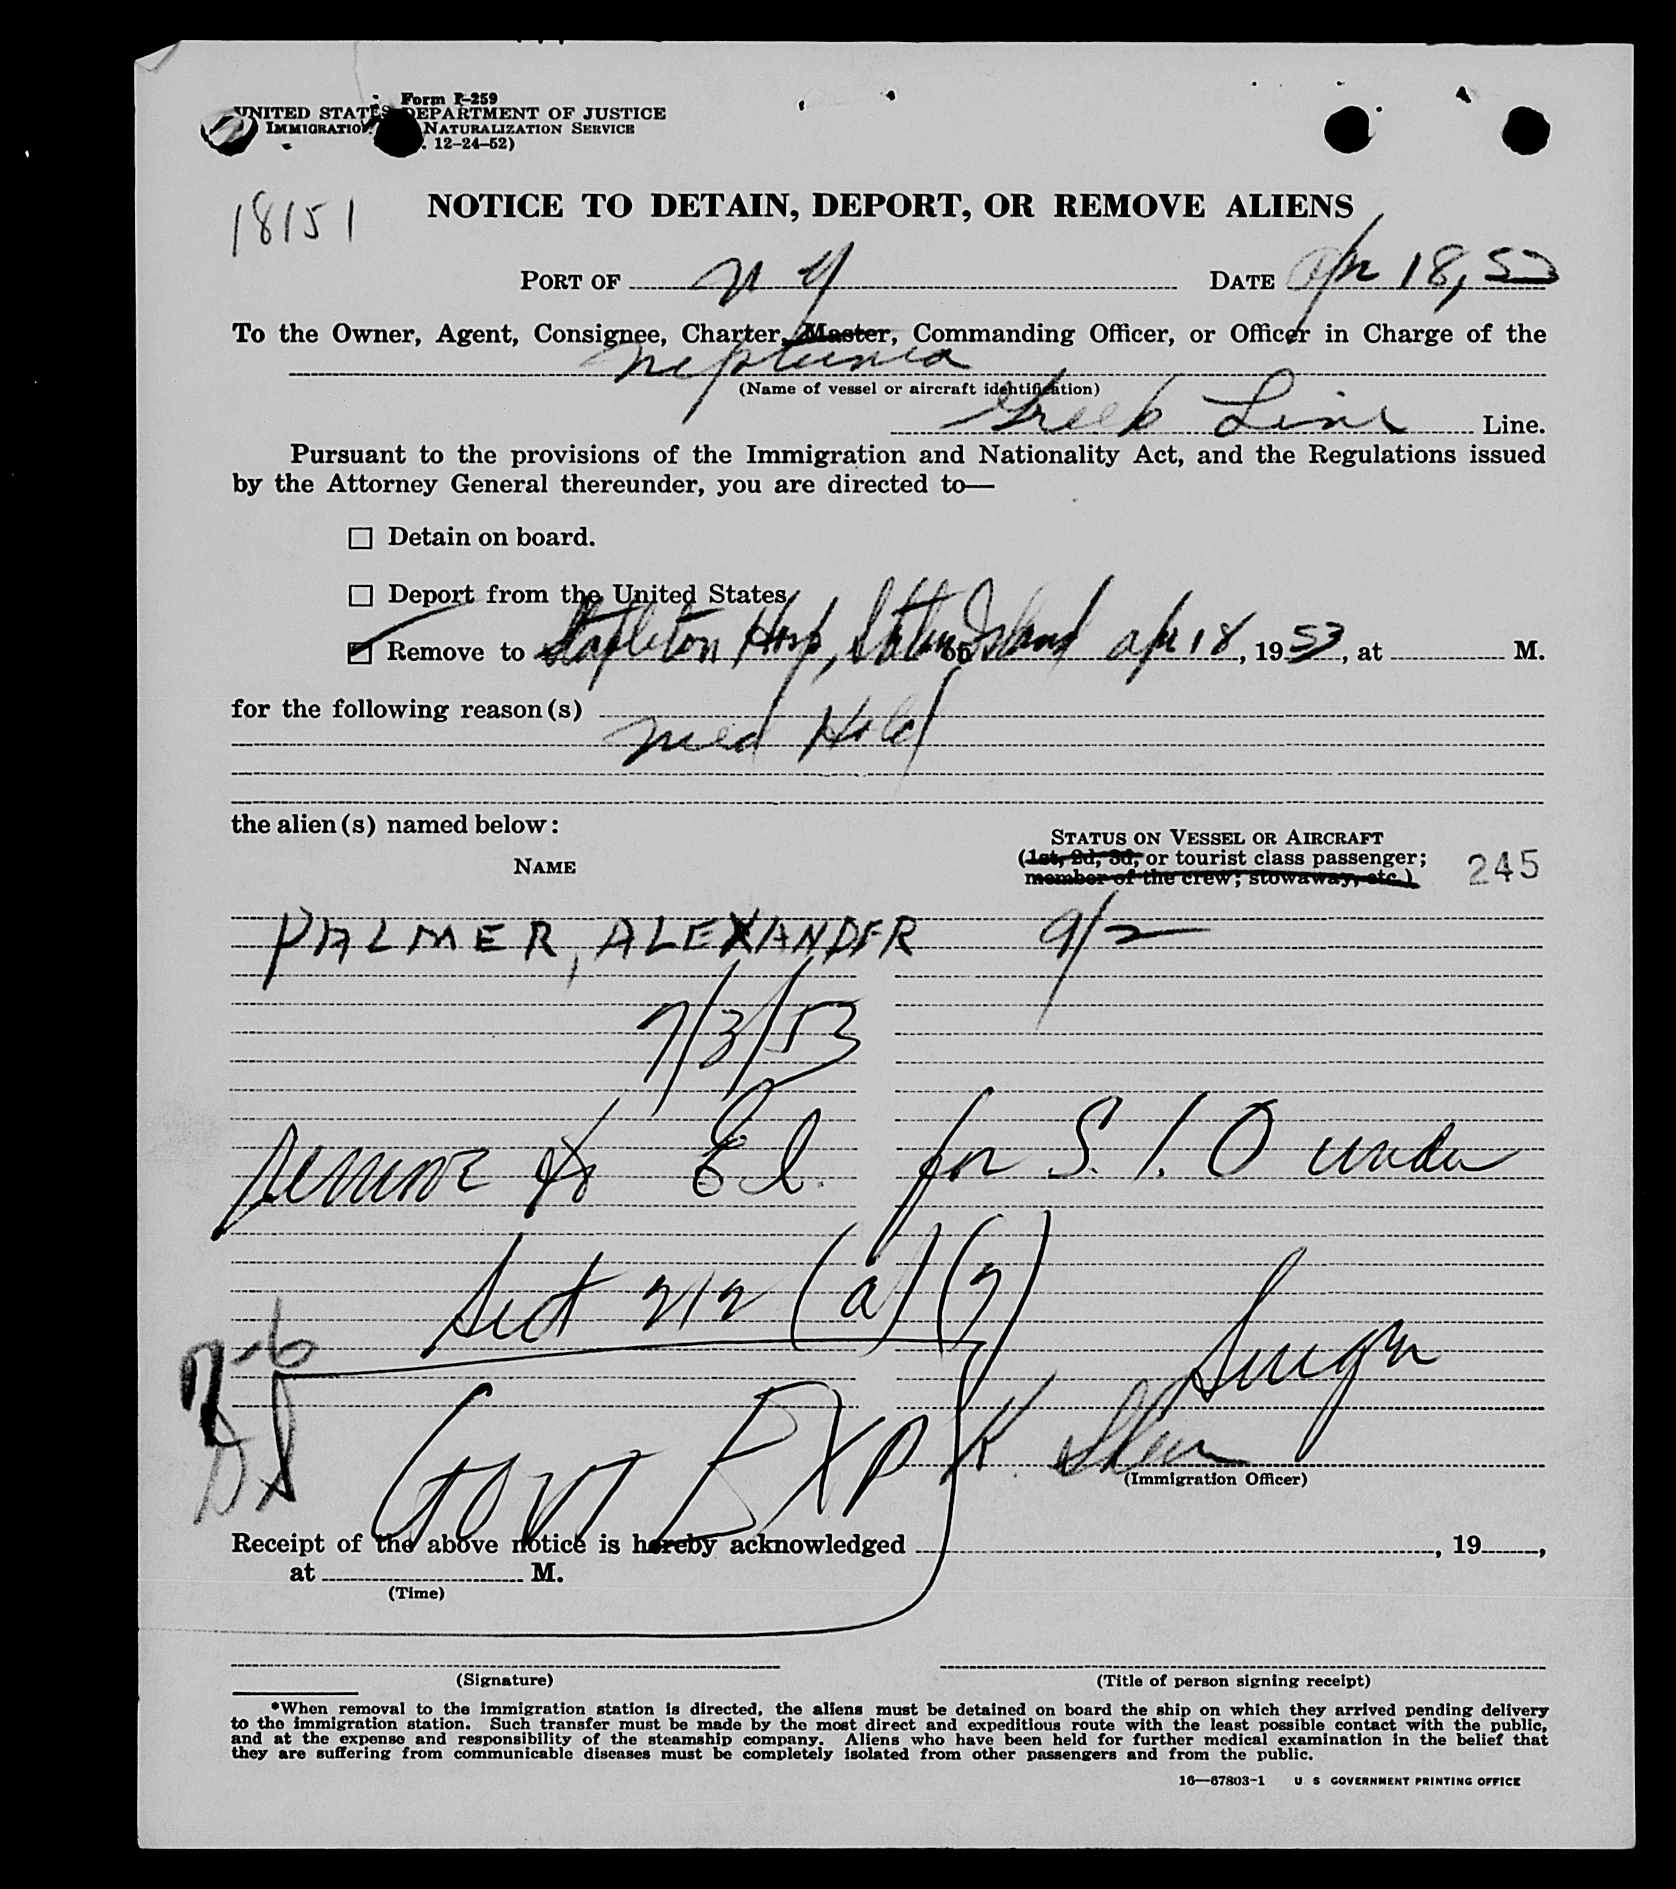 Form I-259
UNITED STATES DEPARTMENT OF JUSTICE
IMMIGRATION NATURALIZATION SERVICE
. 12-24-52)
18151
NOTICE TO DETAIN, DEPORT, OR REMOVE ALIENS
PORT OF N Y DATE Apr 18, 53
To the Owner, Agent, Consignee, Charter, Master, Commanding Officer, or Officer in Charge of the
Neptunia
(Name of vessel or aircraft identification)
Greek Line Line.
Pursuant to the provisions of the Immigration and Nationality Act, and the Regulations issued
by the Attorney General thereunder, you are directed to—
☐ Detain on board.
☐ Deport from the United States.
☑ Remove to Stapleton Hosp, Staten Island Apr 18, 1953, at M.
for the following reason(s)
Med Hold
the alien(s) named below:
STATUS ON VESSEL OR AIRCRAFT
(1st, 2d, 3d, or tourist class passenger;
member of the crew; stowaway, etc.)
NAME
245
PALMER, ALEXANDER 9/2
7/3/53
remove to E.I. for S.I.O under
Sect 212 (a) (7)
7-6
Govt EXP
K.
(Immigration Officer)
Receipt of the above notice is hereby acknowledged , 19 ,
at M.
(Time)
(Signature) (Title of person signing receipt)
*When removal to the immigration station is directed, the aliens must be detained on board the ship on which they arrived pending delivery
to the immigration station. Such transfer must be made by the most direct and expeditious route with the least possible contact with the public,
and at the expense and responsibility of the steamship company. Aliens who have been held for further medical examination in the belief that
they are suffering from communicable diseases must be completely isolated from other passengers and from the public.
16—67803-1 U S GOVERNMENT PRINTING OFFICE